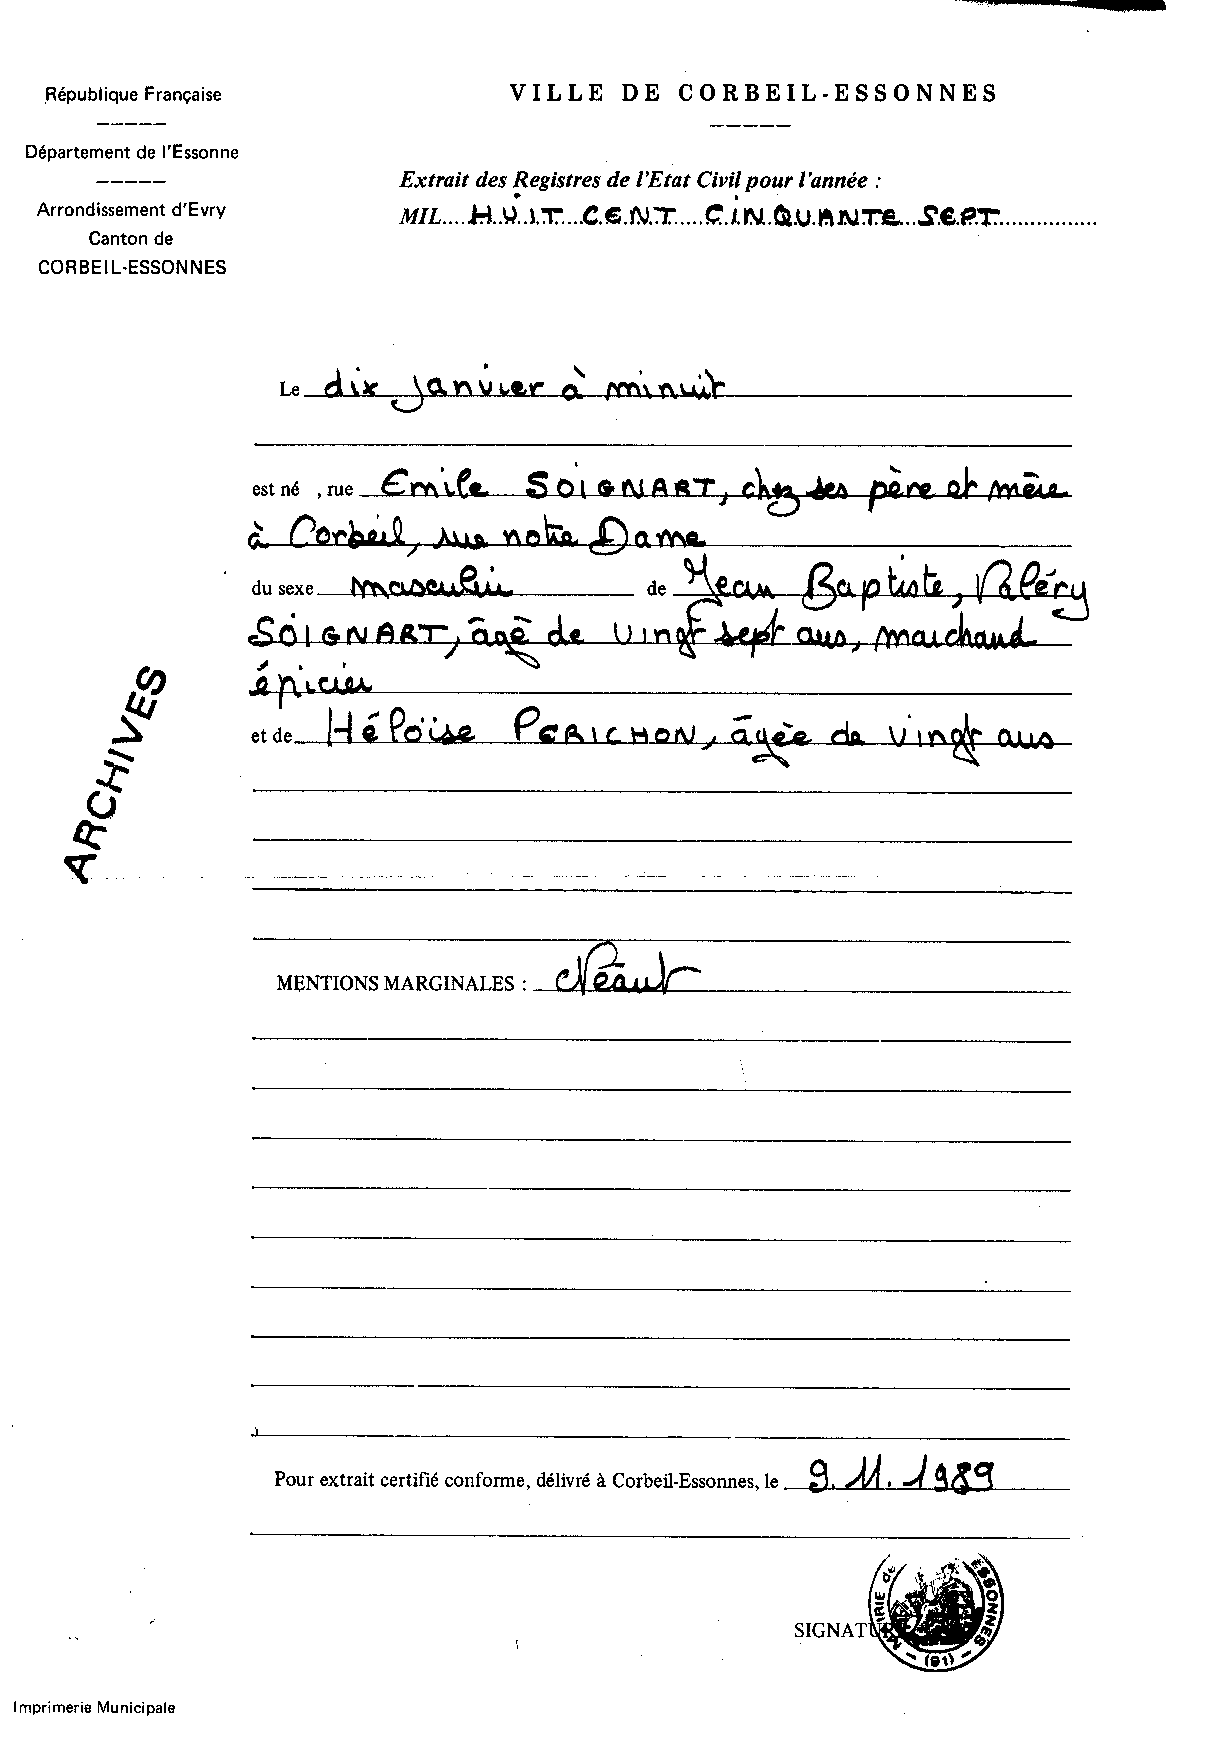 République Française
Département de l'Essonne
Arrondissement d'Evry
Canton de
CORBEIL-ESSONNES
VILLE DE CORBEIL-ESSONNES
Extrait des Registres de l'Etat Civil pour l'année :
MIL....HUIT CENT CINQUANTE SEPT
Le dix janvier à minuit
est né , rue Emile SOIGNART, chez ses père et mère
à Corbeil, rue notre Dame
du sexe masculin de Jean Baptiste, Valéry
SOIGNART, âgé de vingt sept ans, marchand
épicier
et de Héloïse PERICHON, âgée de vingt ans
ARCHIVES
MENTIONS MARGINALES : Néant
Pour extrait certifié conforme, délivré à Corbeil-Essonnes, le 9.11.1989
SIGNATU
MAIRIE de ESSONNES - (91) -
Imprimerie Municipale